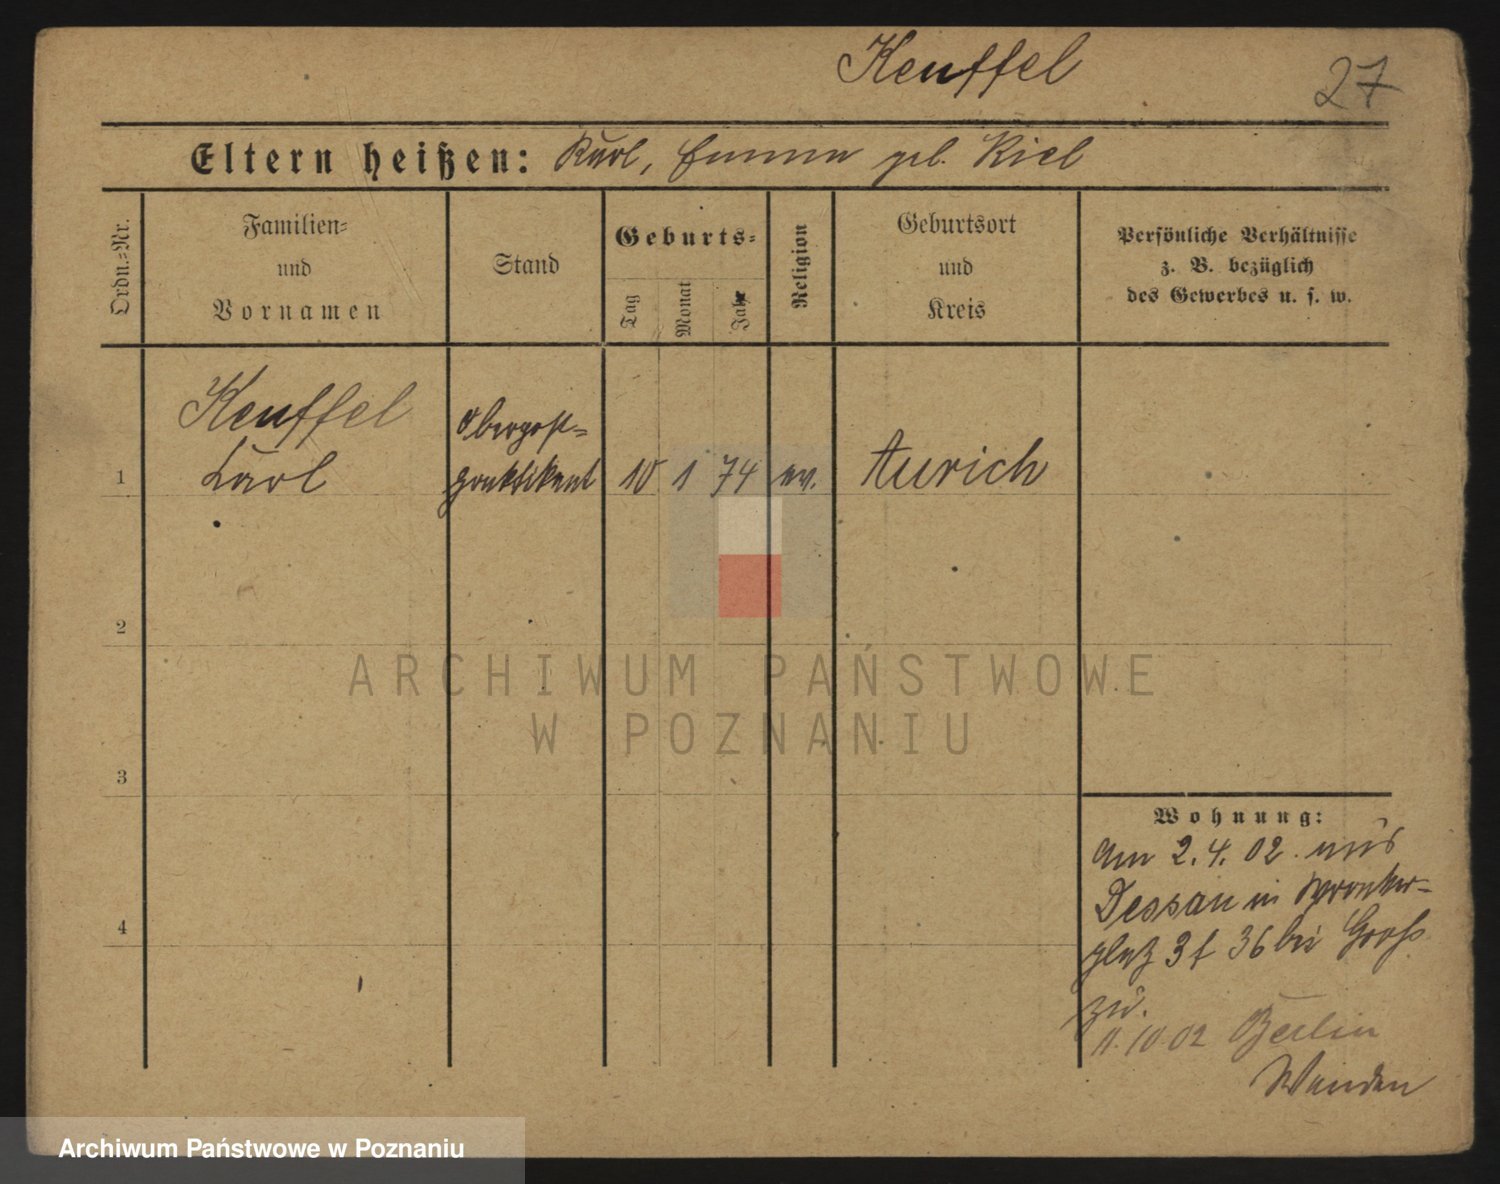 Keuffel
27
Eltern heißen: Karl, Emma geb. Kiel
Ordn.-Nr.
Familien-
und
Vornamen
Stand
Geburts-
Tag
Monat
Jahr
Religion
Geburtsort
und
Kreis
Persönliche Verhältnisse
z. B. bezüglich
des Gewerbes u. s. w.
1
Keuffel
Karl
Oberpost-
praktikant
10 1 74 ev. Aurich
2
3
4
Wohnung:
Am 2.4.02 aus
Dessau in Wronker-
platz 3 f 36 bei Groß
zu.
11.10.02 Berlin
Wenden
ARCHIWUM PAŃSTWOWE
W POZNANIU
Archiwum Państwowe w Poznaniu